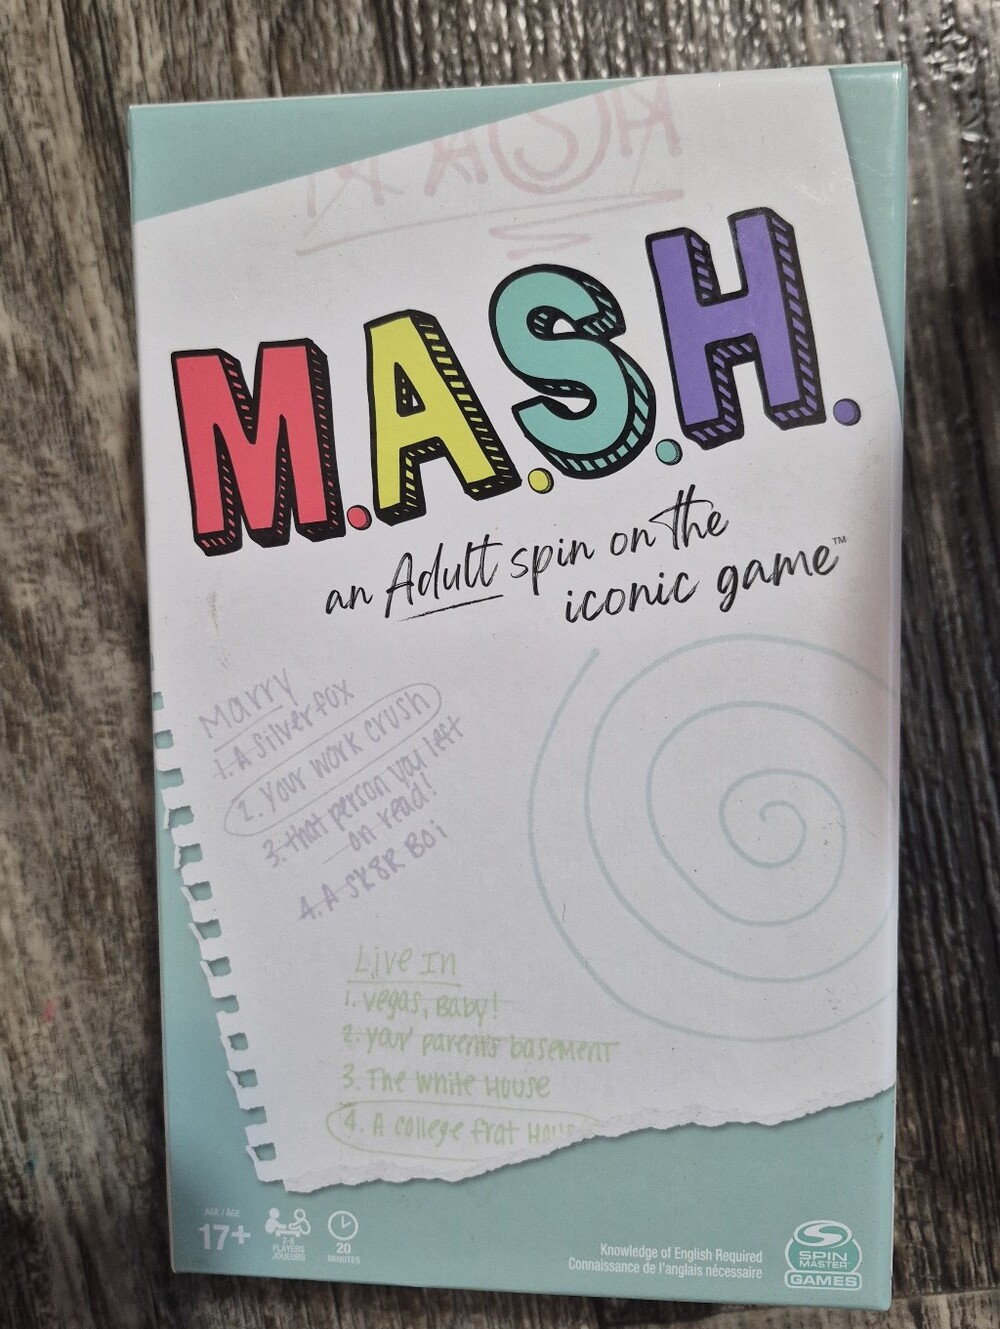 MASH
M.A.S.H.
an Adult spin on the
iconic game™
Marry
1. A Silver fox
2. Your work crush
3. that person you left
on read!
4. A SK8R BOi
Live In
1. Vegas, Baby!
2. your parents basement
3. The White House
4. A college frat
AGE / ÂGE
17+
2-8
PLAYERS
JOUEURS
20
MINUTES
Knowledge of English Required
Connaissance de l'anglais nécessaire
SPIN
MASTER
GAMES